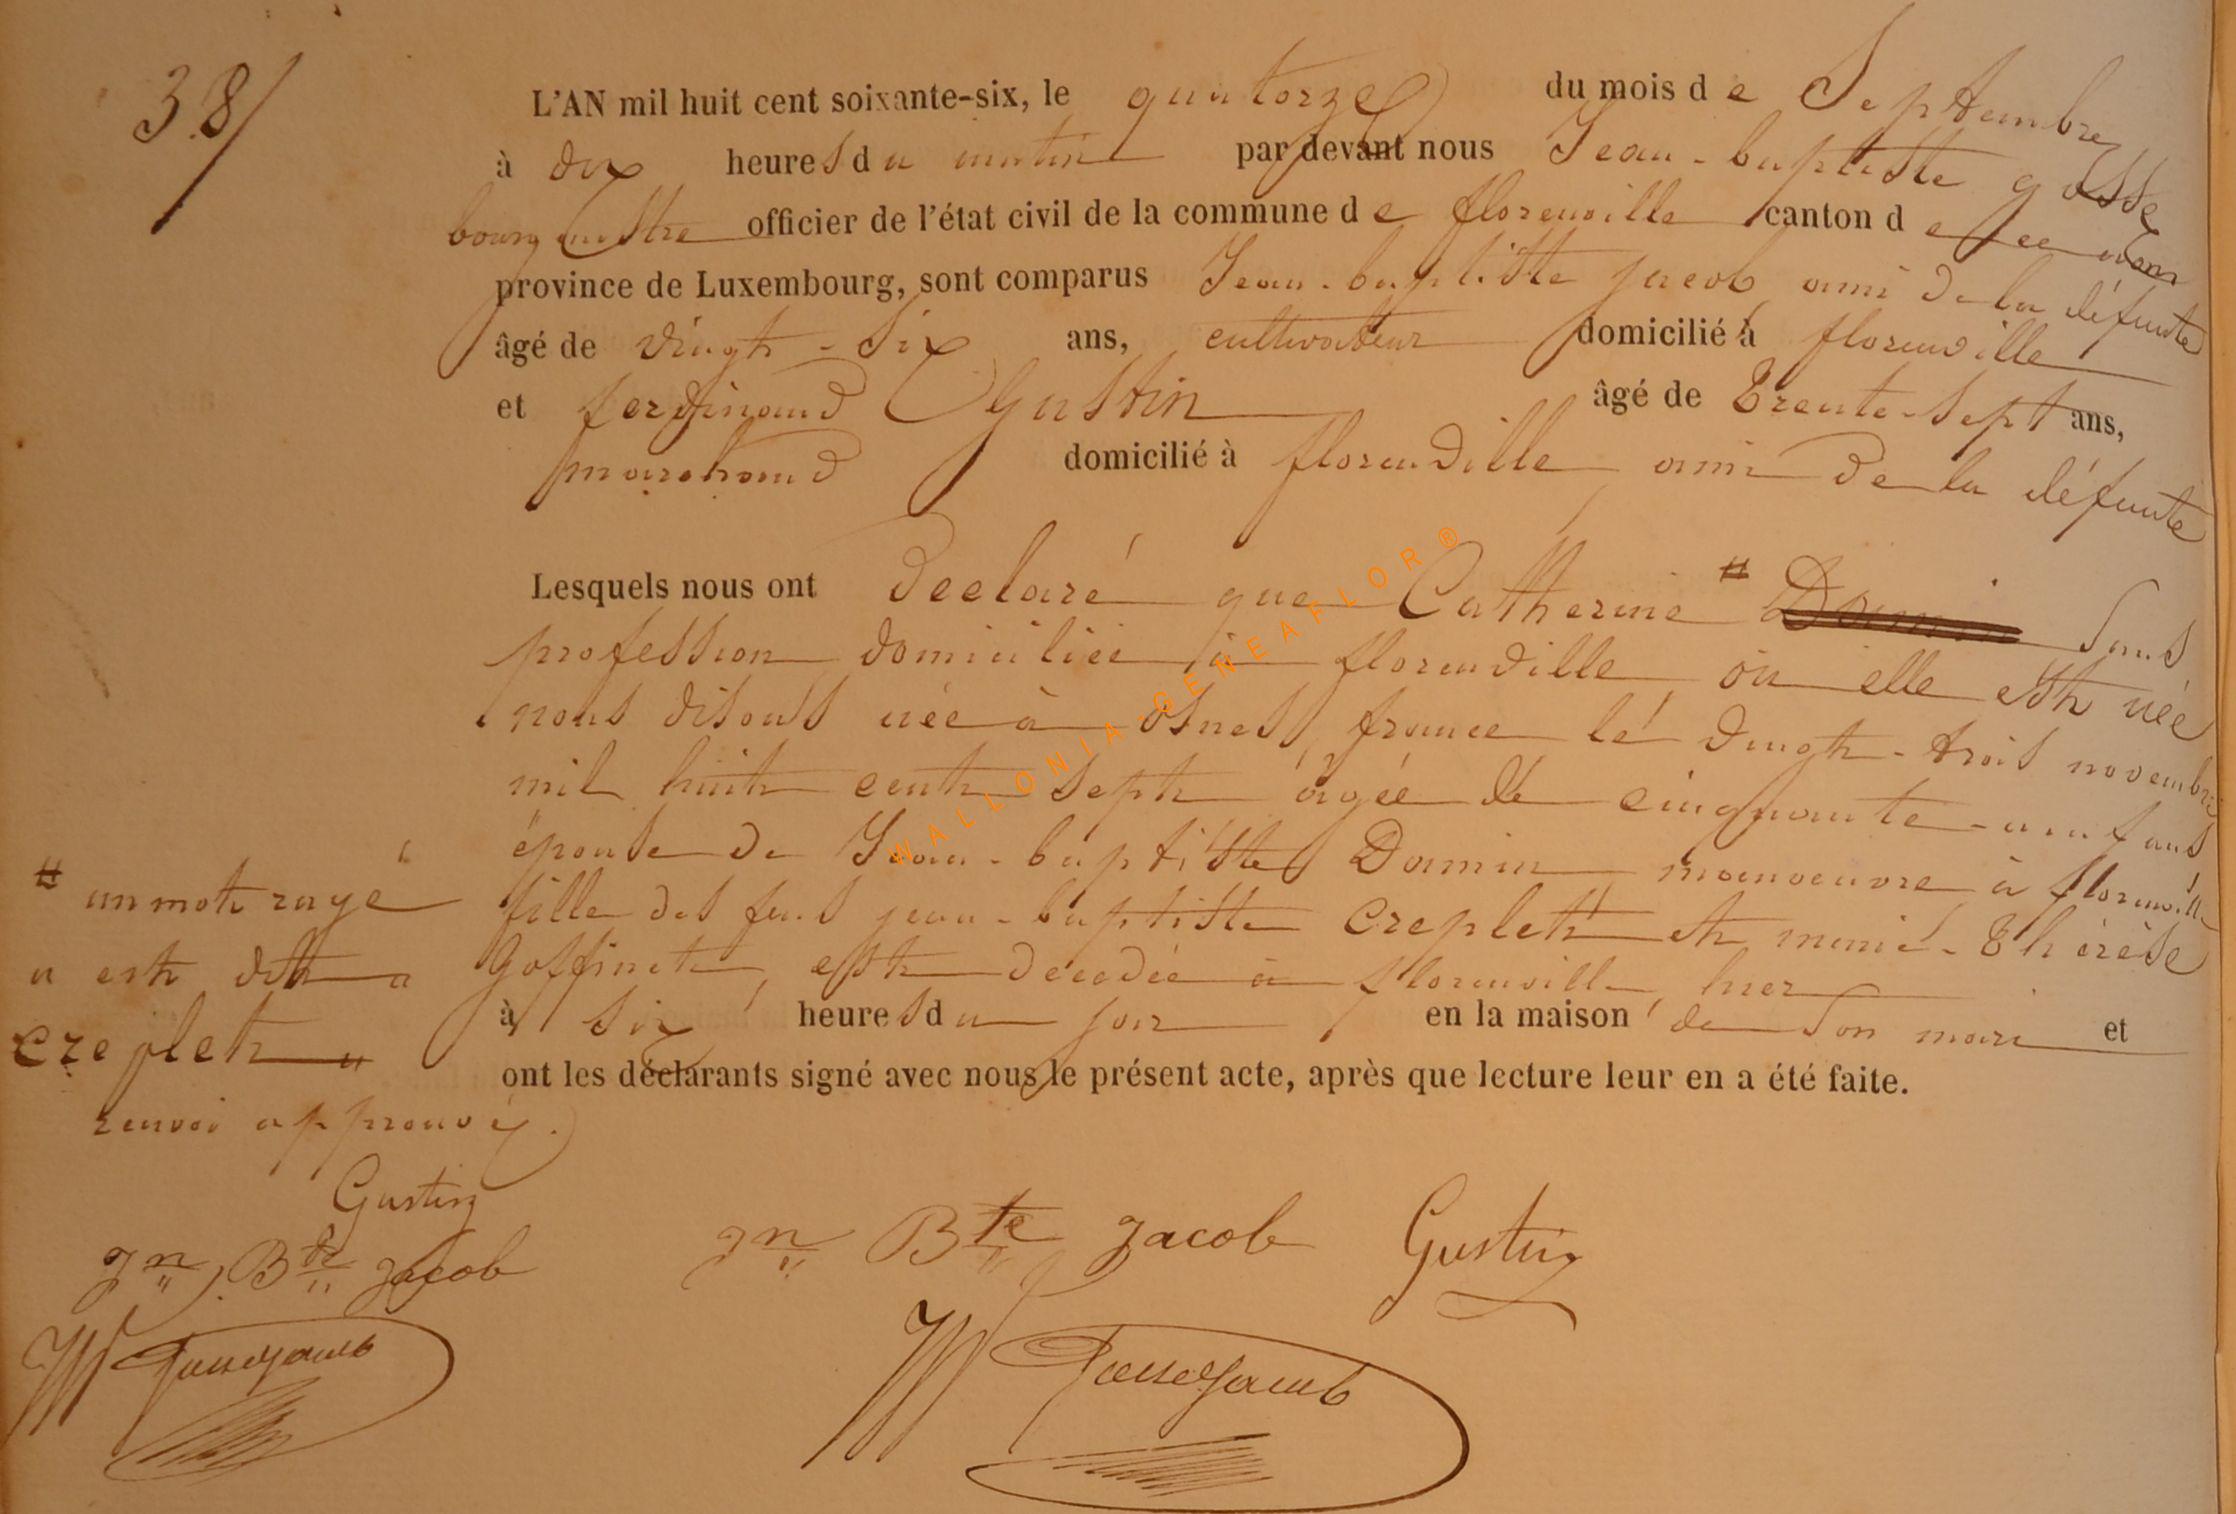 38/
L'AN mil huit cent soixante-six, le quatorze du mois de Septembre
à dix heures du matin par devant nous Jean-baptiste gosse
bourgmestre officier de l'état civil de la commune de florenville canton de
province de Luxembourg, sont comparus Jean-baptiste jacob, ami de la défunte
âgé de vingt-six ans, cultivateur domicilié à florenville
et ferdinand Gustin âgé de trente-sept ans,
marchand domicilié à florenville, ami de la défunte
Lesquels nous ont declaré que Catherine # Damin sans
profession domiciliée à florenville où elle est née
nous disons née à osnes, france le vingt-trois novembre
mil huit cent sept âgée de cinquante-neuf ans
épouse de Jean-baptiste Damin manoeuvre à florenville
fille des feus jean-baptiste creplet et marie-thérèse
goffinet, est decedée à florenville, hier
à six heures du soir en la maison de son mari et
ont les déclarants signé avec nous le présent acte, après que lecture leur en a été faite.
# un mot rayé
et dit
creplet "
renvoi approuvé.
Gustin
Jn Bte Jacob
Jn Bte Jacob Gustin
WALLONIA-GENEAFLOR®